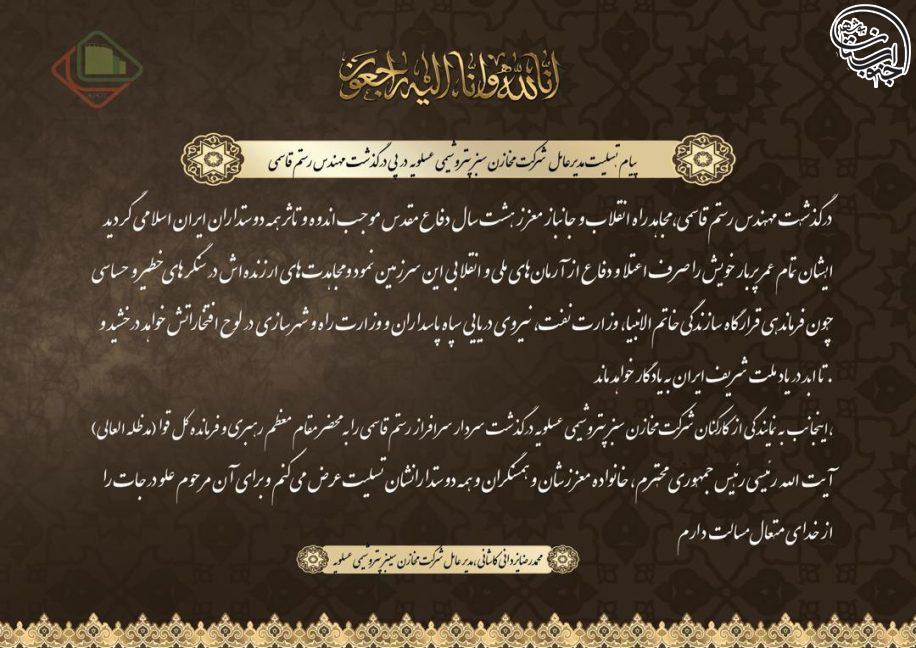 انا لله وانا الیه راجعون
پیام تسلیت مدیرعامل شرکت مخازن سبز پتروشیمی عسلویه در پی درگذشت مهندس رستم قاسمی
درگذشت مهندس رستم قاسمی، مجاهد راه انقلاب و جانباز معزز هشت سال دفاع مقدس موجب اندوه و تاثر همه دوستداران ایران اسلامی گردید
ایشان تمام عمر پربار خویش را صرف اعتلا و دفاع از آرمان های ملی و انقلابی این سرزمین نمود و مجاهدت های ارزنده اش در سنگرهای خطیر و حساسی
چون فرماندهی قرارگاه سازندگی خاتم الانبیا، وزارت نفت، نیروی دریایی سپاه پاسداران و وزارت راه و شهرسازی در لوح افتخاراتش خواهد درخشید و
. تا ابد در یاد ملت شریف ایران به یادگار خواهد ماند
،اینجانب به نمایندگی از کارکنان شرکت مخازن سبز پتروشیمی عسلویه درگذشت سردار سرافراز رستم قاسمی را به محضر مقام معظم رهبری و فرمانده کل قوا (مدظله العالی)
آیت الله رئیسی رئیس جمهوری محترم، خانواده معزز شان و همسنگران و همه دوستدارانشان تسلیت عرض می کنم و برای آن مرحوم علو درجات را
از خدای متعال مسالت دارم
محمدرضا یزدانی کاشانی، مدیر عامل شرکت مخازن سبز پتروشیمی عسلویه